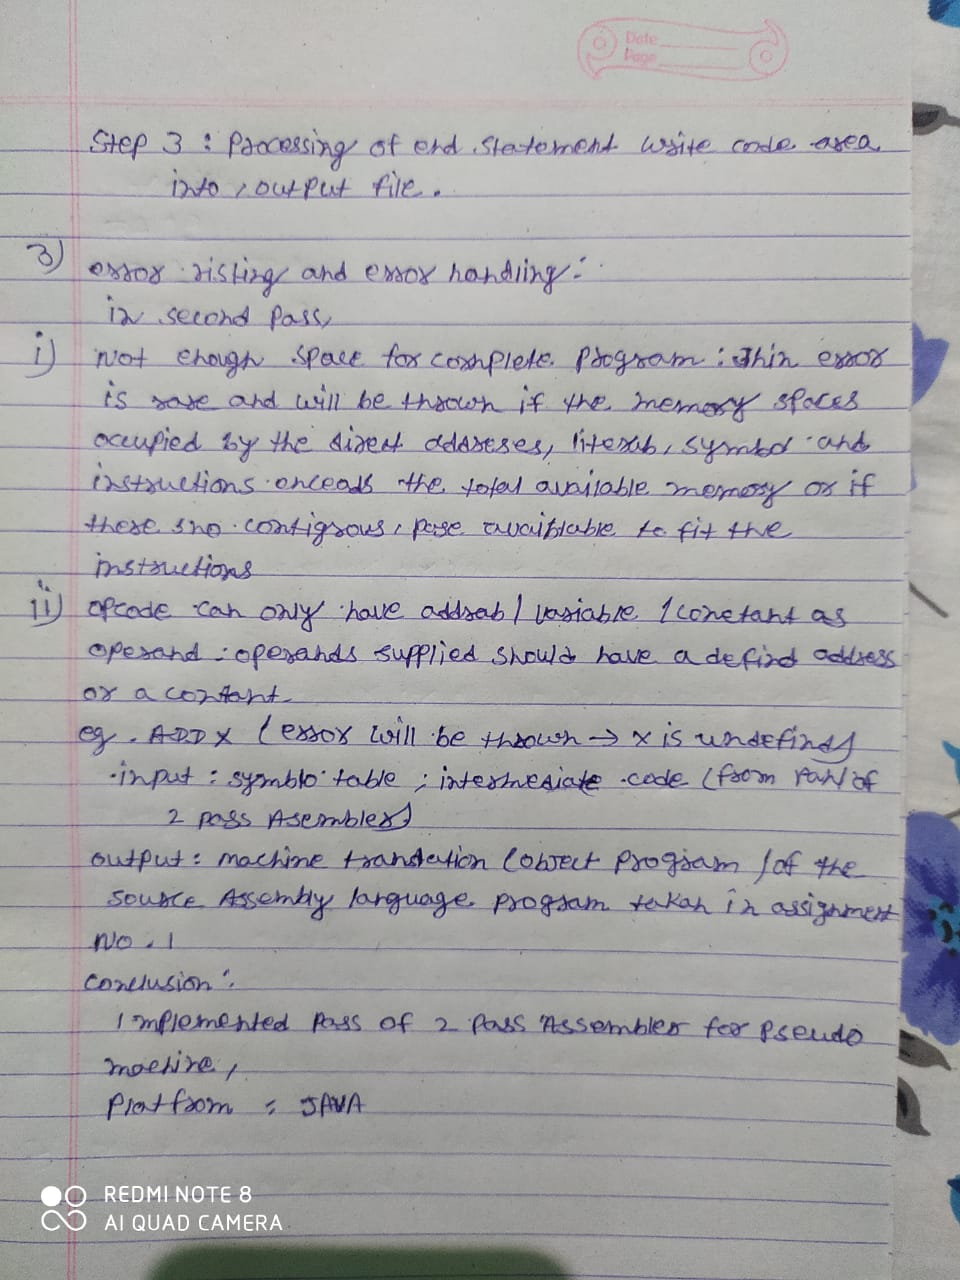 Date
Page
Step 3 : Processing of end statement write code area
into output file.
3) error listing and error handling :-
in second pass,
i) Not enough space for complete program : This error
is rare and will be thrown if the memory spaces
occupied by the direct addreses, literals, symbol and
instructions exceads the total available memory or if
there is no contigrous, pase avaiblable to fit the
instructions
ii) opcode can only have addreb / variable / constant as
operand : operands supplied should have a defind address
or a contant
eg. ADD X (error will be thrown → x is undefind)
input : symblo table ; intermediate code (from of
2 pass Asembler)
output : machine translation (object program) of the
source Assembly language program taken in assignment
No. 1
Conclusion :
Implemented pass of 2 pass Assembler for pseudo
machine,
Platfrom : JAVA
REDMI NOTE 8
AI QUAD CAMERA